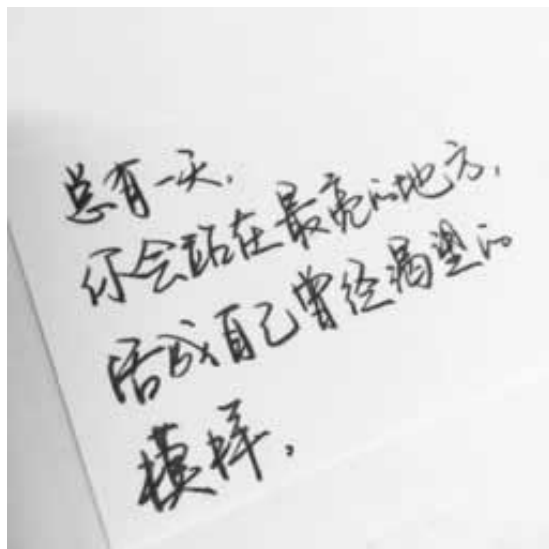 总有一天,
你会站在最亮的地方,
活成自己曾经渴望的
模样。